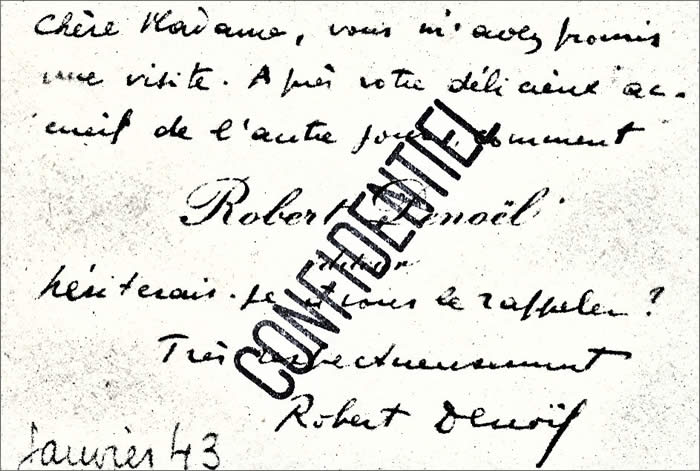 Chère Madame, vous m'avez promis
une visite. Après votre délicieux ac-
cueil de l'autre jour, comment
Robert Denoël
CONFIDENTIEL
hésiterais-je à vous le rappeler ?
Très respectueusement
Robert Denoël
Janvier 43